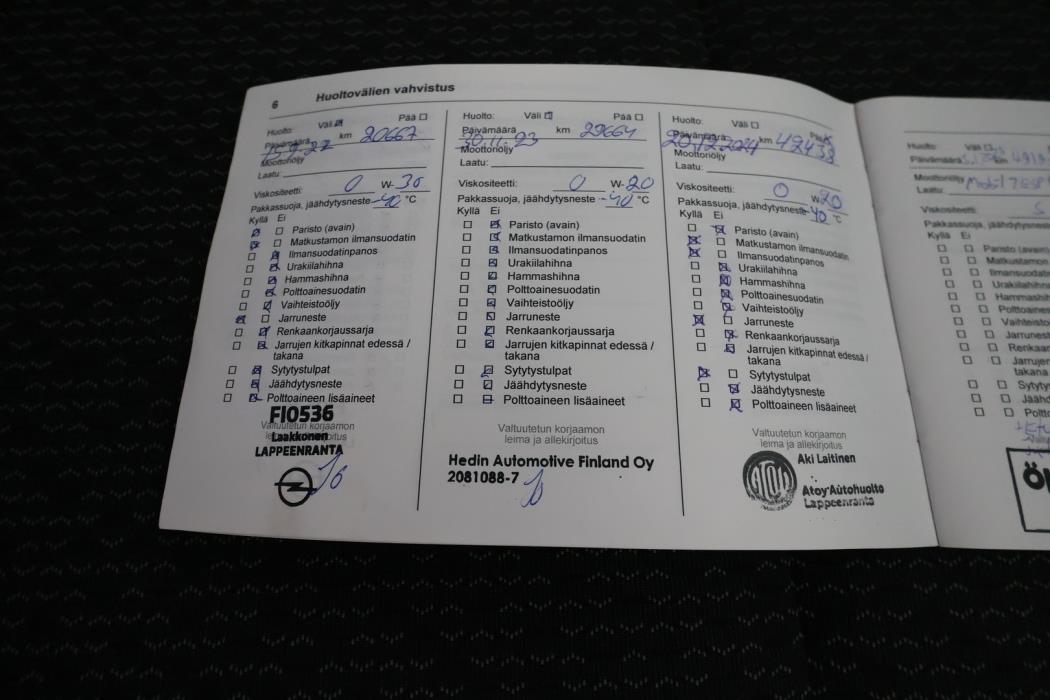 6 Huoltovälien vahvistus
Huolto: Väli Pää
Päivämäärä km 20667
Moottoriöljy
Laatu:
Viskositeetti: 0 W-30
Pakkassuoja, jäähdytysneste -40 °C
Kyllä Ei
Paristo (avain)
Matkustamon ilmansuodatin
Ilmansuodatinpanos
Urakiilahihna
Hammashihna
Polttoainesuodatin
Vaihteistoöljy
Jarruneste
Renkaankorjaussarja
Jarrujen kitkapinnat edessä /
takana
Sytytystulpat
Jäähdytysneste
Polttoaineen lisäaineet
FI0536
Valtuutetun korjaamon
Laakkonen
LAPPEENRANTA
Huolto: Väli Pää
Päivämäärä km 29664
30.11.23
Moottoriöljy
Laatu:
Viskositeetti: 0 W-20
Pakkassuoja, jäähdytysneste -40 °C
Kyllä Ei
Paristo (avain)
Matkustamon ilmansuodatin
Ilmansuodatinpanos
Urakiilahihna
Hammashihna
Polttoainesuodatin
Vaihteistoöljy
Jarruneste
Renkaankorjaussarja
Jarrujen kitkapinnat edessä /
takana
Sytytystulpat
Jäähdytysneste
Polttoaineen lisäaineet
Valtuutetun korjaamon
leima ja allekirjoitus
Hedin Automotive Finland Oy
2081088-7
Huolto: Väli Pää
Päivämäärä km 42438
20.12.2024
Moottoriöljy
Laatu:
Viskositeetti: 0 W-20
Pakkassuoja, jäähdytysneste -40 °C
Kyllä Ei
Paristo (avain)
Matkustamon ilmansuodatin
Ilmansuodatinpanos
Urakiilahihna
Hammashihna
Polttoainesuodatin
Vaihteistoöljy
Jarruneste
Renkaankorjaussarja
Jarrujen kitkapinnat edessä /
takana
Sytytystulpat
Jäähdytysneste
Polttoaineen lisäaineet
Valtuutetun korjaamon
leima ja allekirjoitus
ATOY
Aki Laitinen
Atoy Autohuolto
Lappeenranta
Huolto: Väli
Päivämäärä
Moottoriöljy
Laatu:
Viskositeetti:
Pakkassuoja,
Kyllä Ei
Paristo (avain)
Matkustamon